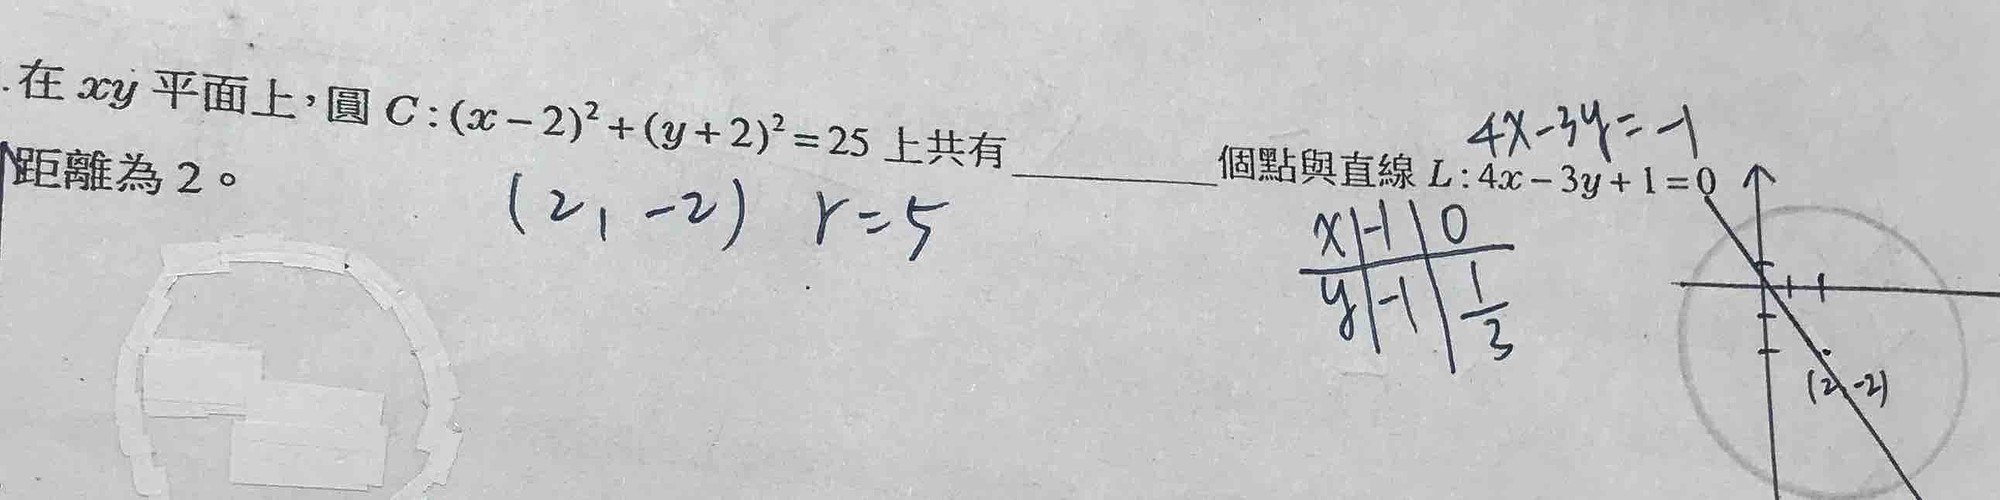 .在 xy 平面上，圓 C:(x−2)²+(y+2)²=25 上共有________個點與直線 L:4x−3y+1=0
距離為 2。
4x−3y=−1
(2,−2) r=5
x|−1|0
y|−1|1/3
(2,−2)